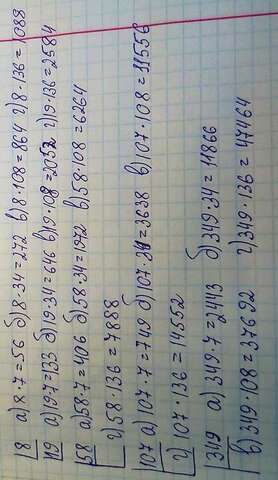 8 а) 8·7=56 б) 8·34=272 в) 8·108=864 г) 8·136=1088
19 а) 19·7=133 б) 19·34=646 в) 19·108=2052 г) 19·136=2584
58 а) 58·7=406 б) 58·34=1972 в) 58·108=6264
г) 58·136=7888
107 а) 107·7=749 б) 107·34=3638 в) 107·108=11556
г) 107·136=14552
349 а) 349·7=2443 б) 349·34=11866
в) 349·108=37692 г) 349·136=47464